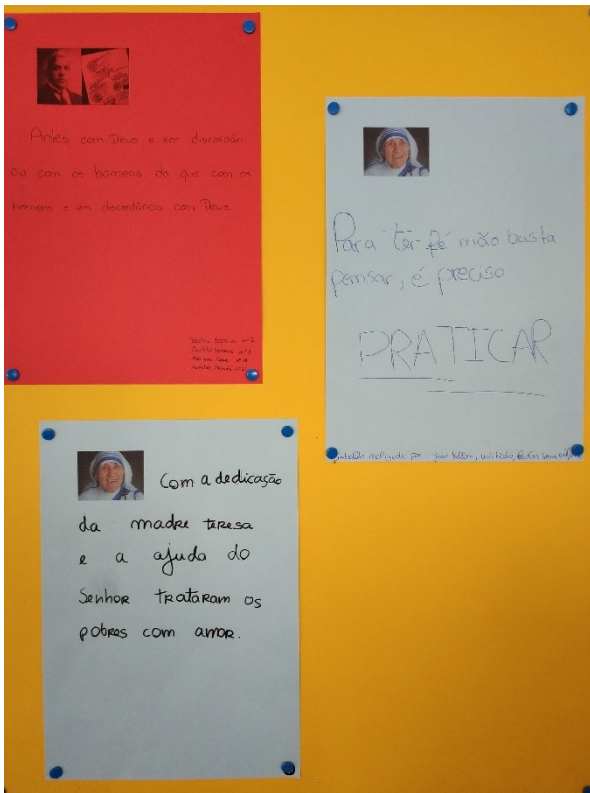 Antes com Deus e em discordân
cia com os homens do que com os
homens e em discordância com Deus
Para ter fé não basta
pensar, é preciso
PRATICAR
realizado por:
Com a dedicação
da madre teresa
e a ajuda do
Senhor trataram os
pobres com amor.